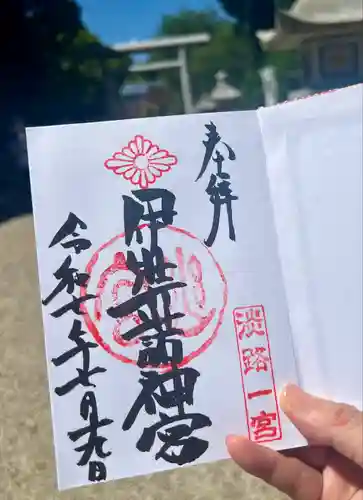 奉拝
伊弉諾神宮
淡路一宮
令和七年七月九日